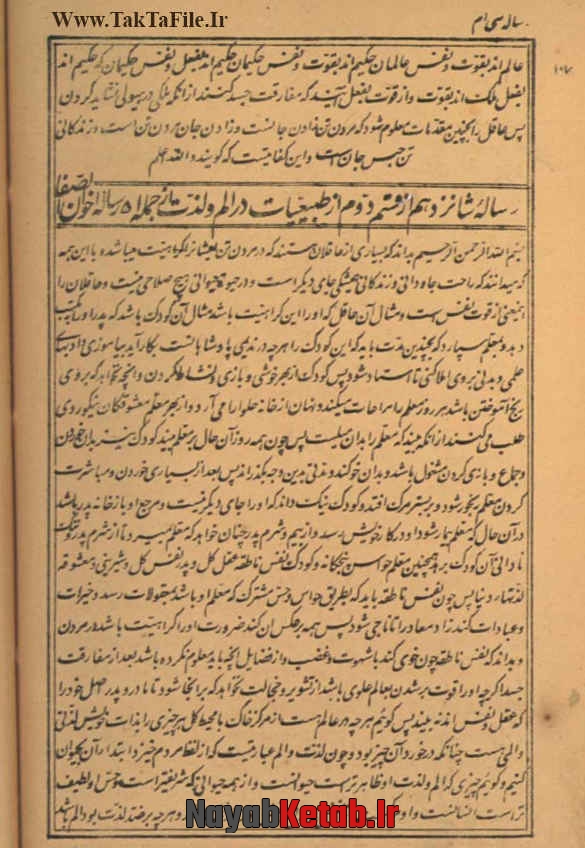 www.TakTaFile.Ir
رساله سی ام
عالم اند بقوت و نفس عالمان حکیم اند بقوت و نفس حکیمان حکیم اند بفعل و نفس حکیمان که حکیم اند
بفعل ملک اند بقوت و از قوت بفعل آیند که مفارقت جسد کنند از آنکه ملکی در هیولی نشاید کردن
پس عاقل را بچنین مقدمات معلوم شود که مردن تن زادن جانست و زادن جان مردن تن است و زندگانی
تن حبس جان است و این کفایتست که گویند والله اعلم
رساله شانزدهم از قسم دوم از طبیعیات در الم و لذت از جمله ۵۱ رساله اخوان الصفا
بسم الله الرحمن الرحیم بدانکه بسیاری از عاقلان هستند که در مردن تن ایشانرا کراهیت میباشد با این همه
که میدانند که راحت جاودانی و زندگانی همیشگی جای دیگر است و در حیوة حیوانی هیچ صلاحی نیست و عاقلان را
اینمعنی از قوت نفس است و مثال آن عاقل که او را این کراهیت باشد مثال آن کودک باشد که پدر او را بمکتب
دهد و بمعلم سپارد که بچندین مدت باید که این کودک را هرچه در ندیمی پادشاهانست بکار آید بیاموزی
علمی و بدنی بروی املا کنی تا استاد شود پس کودک از بهر خوشی و بازی و نشاط کردن و آنچه نخواهد که بروی
رنج آموختن باشد هر روز معلم را مراعات میکند و نهان از خانه حلوا را می آرد و از بهر معلم معشوقگان نیکو روی
طلب می کند از آنکه میبیند که معلم را بدان میلست پس چون همه روز آن حال بر معلم بیند کودک نیز بدان خوردن
و جماع و بازی کردن مشغول باشد و بدان خو کند و مدتی بدین وجه بگذراند پس بعد از بسیاری خوردن و مباشرت
کردن معلم رنجور شود و بر بستر مرگ افتد و کودک نیک داند که او را جای دیگر نیست و مرجع او با خانه پدر باشد
در آن حال که معلم بیمار شود او در کار خویش رسد و از بیم و شرم پدر چنان خواهد که معلم نمیرد تا از شرم پدر
نادانی آن کودک برهد همچنین معلم حواس پنجگانه و کودک نفس ناطقه عقل کل و پدر نفس کل و شیرینی و معشوقه
لذتهای دنیا پس چون نفس ناطقه باید که بطریق حواس و حس مشترک که معلم او باشد بمعقولات رسد و خیرات
و عبادات کند زاد معاد را تا ناجی شود پس همه بر عکس آن کند ضرورت او را کراهیت باشد در مردن
و بداند که نفس ناطقه چون خوی کند با شهوت و غضب و از فضایل آنچه باید معلوم نکرده باشد بعد از مفارقت
جسد اگرچه او را قوت بر شدن بعالم علوی باشد از تشویر و خجالت نخواهد که برانجا شود تا مادر و پدر اصل خود را
که عقل و نفس اند نه بیند پس گوئیم هرچه در عالم است از مرکز خاک تا محیط کل هر چیزی را بذات خویش لذتی
و المی هست چنانکه در خورد آن چیز بود و چون لذت و الم عبارتیست که از لفظ مردم خیزد ابتدا از آن بحیوان
کنیم و گوئیم چیزی که الم و لذت او ظاهرتر است حیوانست و از همه حیوانی که شریفتر است و حس و لطیف
تر است انسانست و او
و هرچه بر ضد لذت بود الم باشد
NayabKetab.Ir